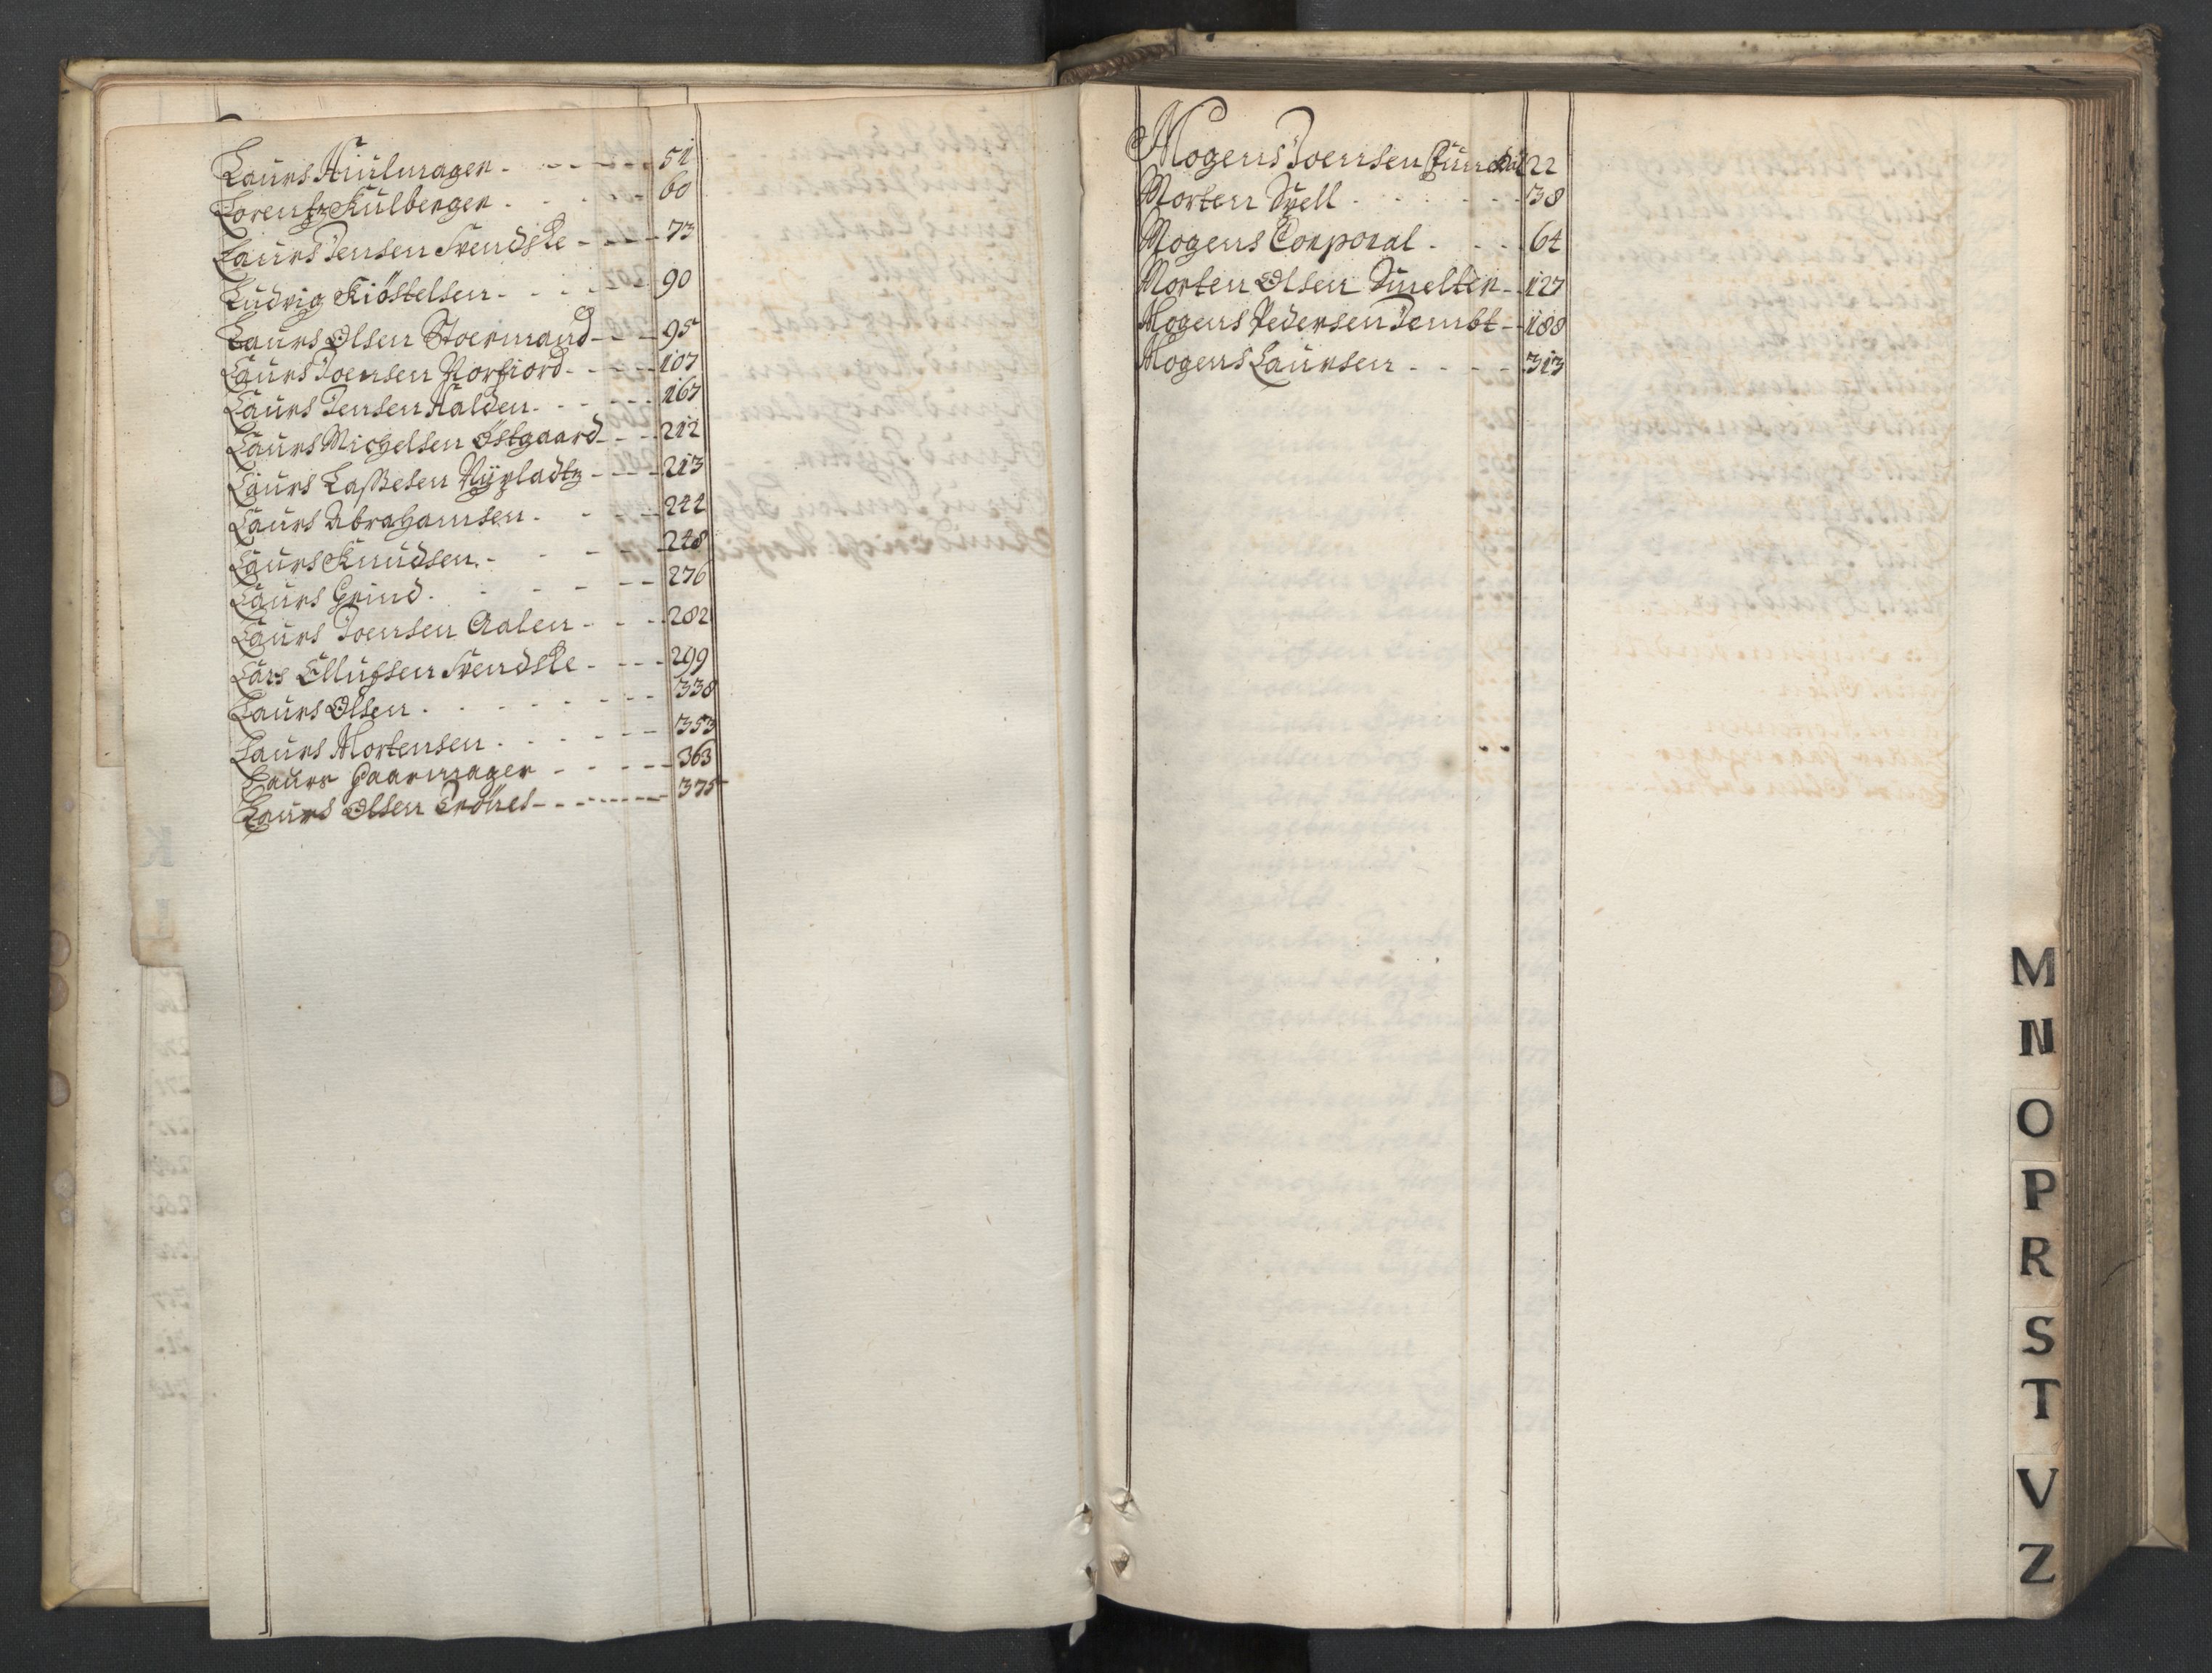 Laurs Hiulmager - - - - - 51
Lorentz Kulberger - - - - 60
Laurs Jensen Svendske - - - - 73
Ludvig Kiöstelsen - - - - 90
Laurs Olsen Stoermand - - - 95
Laurs Joensen Norfiord - - - - 107
Laurs Jensen Aalden - - - - - 167
Laurs Michelsen Östgaard - - - 212
Laurs Lassesen Nÿpladtz - - - - 213
Laurs Abrahamsen - - - - 244
Laurs Knudsen - - - - - 248
Laurs Grind - - - - - - 276
Laurs Joensen Aalen - - - 282
Lars Ellufsen Svendske - - - - 299
Laurs Olsen - - - - - - - - 338
Laurs Mortensen - - - - - - - 353
Laurs Gaarmager - - - - - - 363
Laurs Olsen - - - - - - - - - 375
Mogens Joensen 22
Morten Svell - - - - - - - 38
Mogens Corporal - - - - 64
Morten Olsen Smelter - - 127
Mogens Pedersen Jembt - - 188
Mogens Laursen - - - - 313
M
N
O
P
R
S
T
V
Z